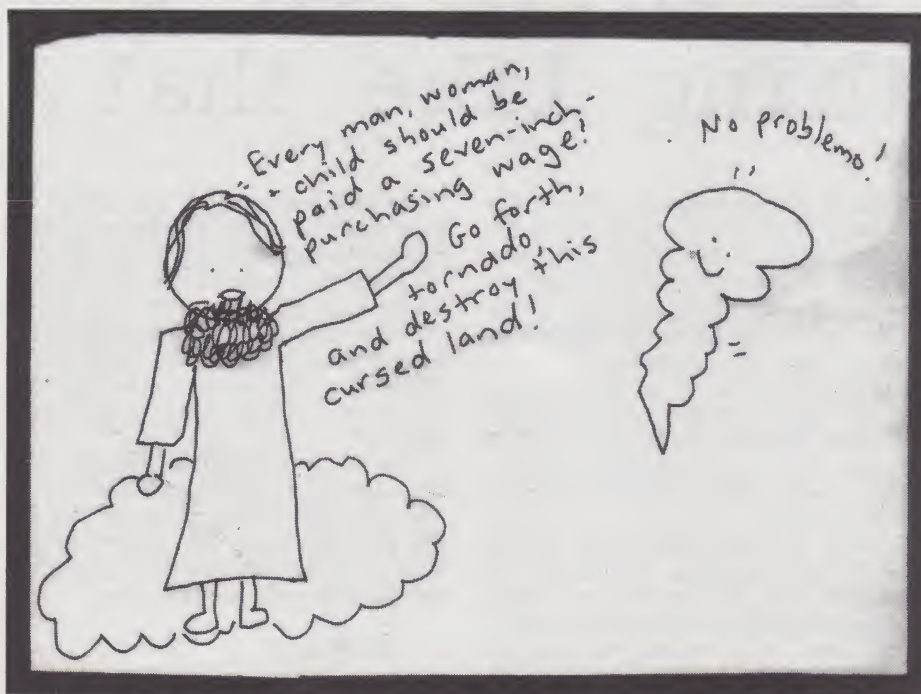 Every man, woman,
+ child should be
paid a seven-inch-
purchasing wage!
Go forth,
tornado,
and destroy this
cursed land!
No problemo!